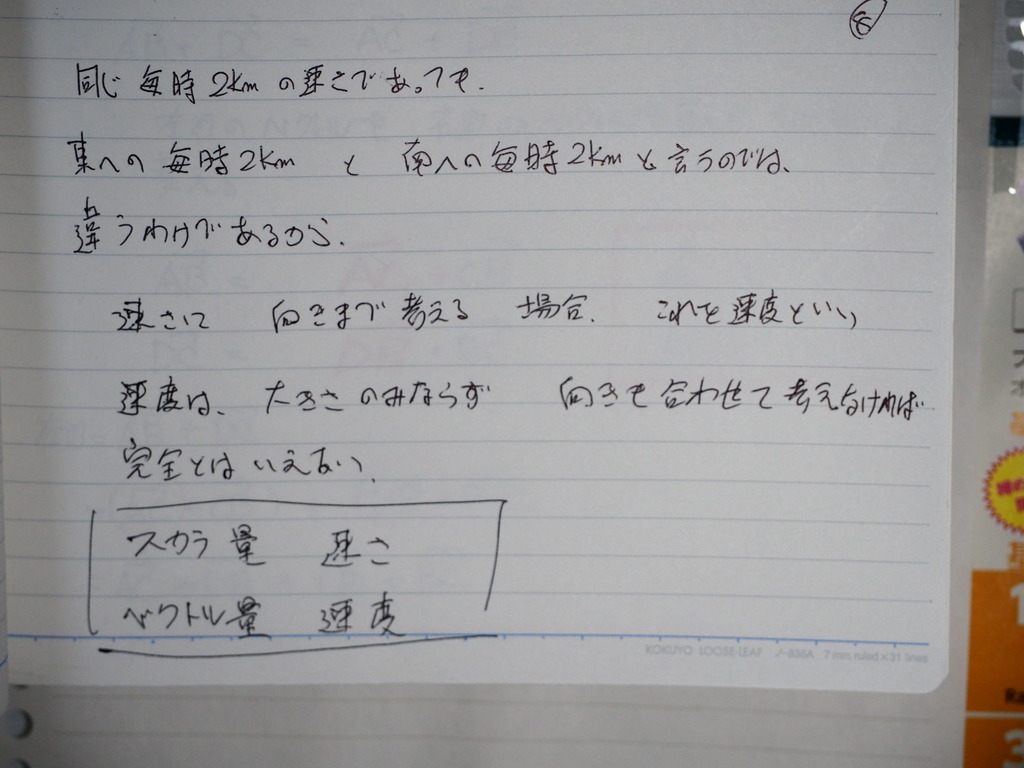 ⑧
同じ 毎時2Kmの速さであっても.
東への 毎時2Km と 南への毎時2Kmと言うのでは、
違うわけであるから.
速さに 向きまで考える 場合. これを速度といい
速度は、大きさのみならず 向きも合わせて考えなければ
完全とはいえない.
スカラ量 速さ
ベクトル量 速度
KOKUYO LOOSE-LEAF ノ-836A 7 mm ruled×31 lines